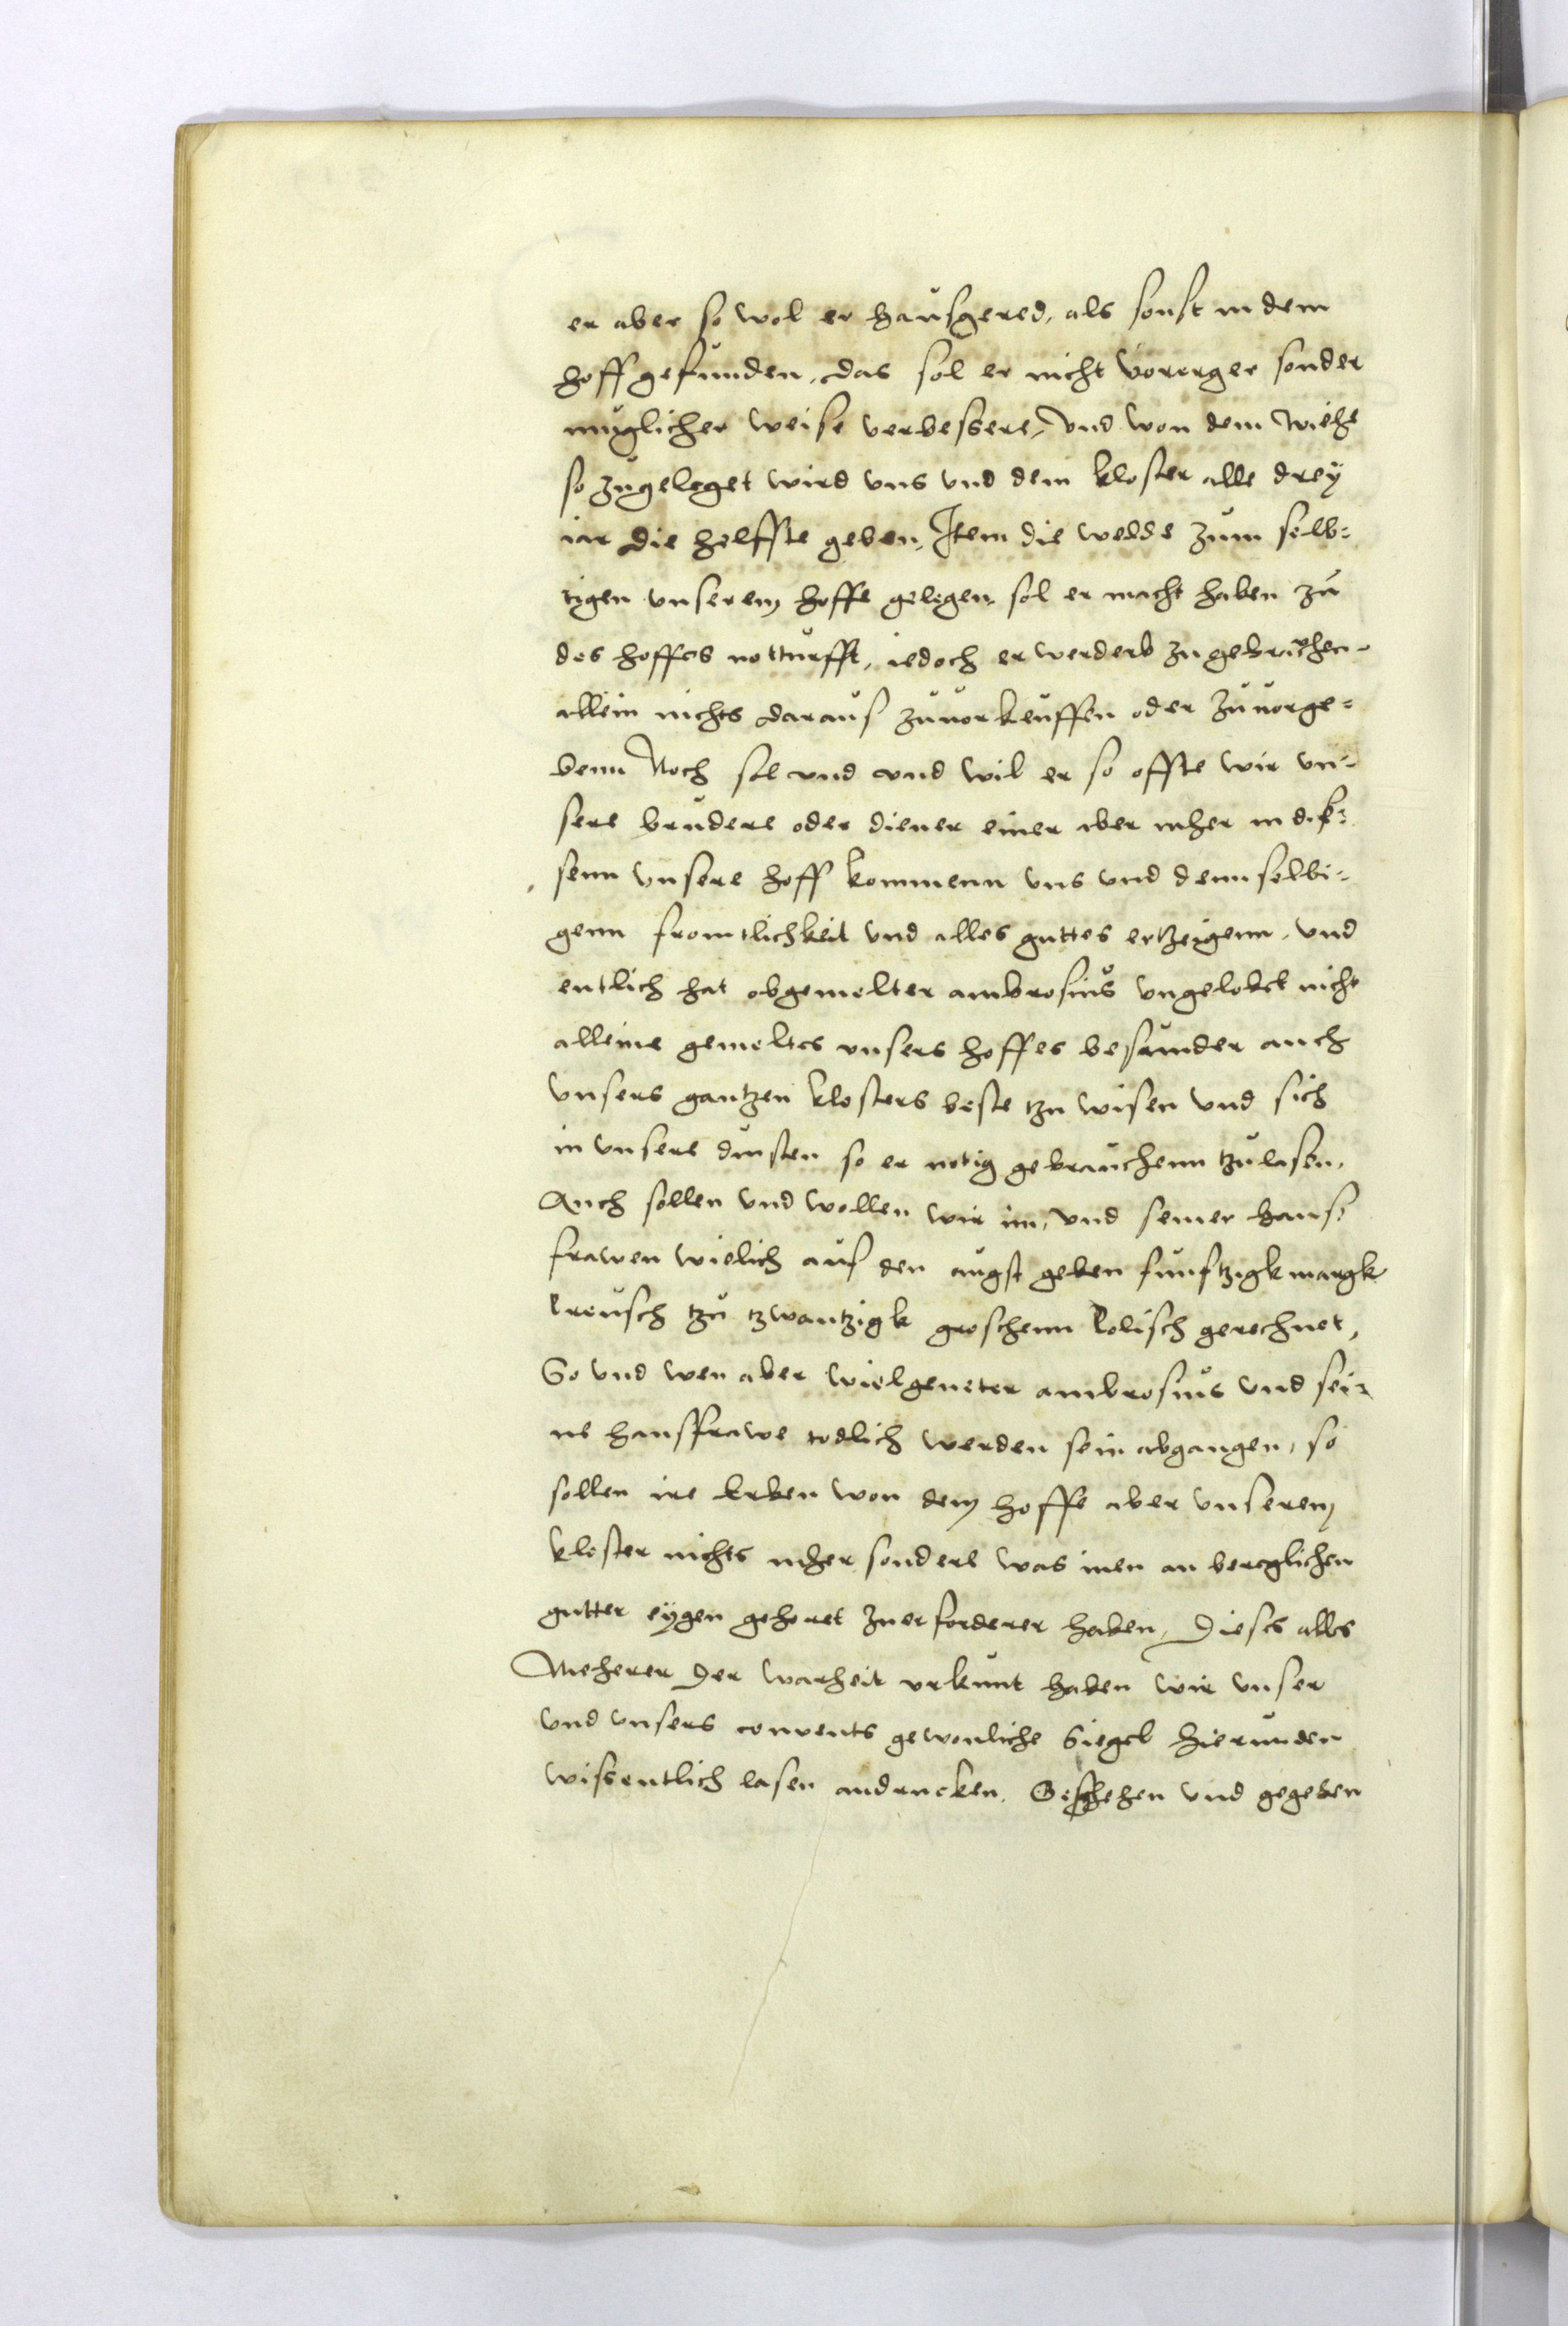 er aber so wol er hausgered, als sonst in dem
hoff gefunden, das sol er nicht vorerger sonder
muglicher weise verbessere, Und von dem wiehe
so zugeleget wird uns und dem kloster alle drey
iar die helffte geben, Item die welde zum selb-
tigen unserem hoffe gelegen sol er macht haben zu
des hoffes notturfft, iedoch er werderb zu gebrauchen
allein nichts daraus zuvorkeuffen oder zuvorge-
benn Noch sol und und wil er so offte wir un-
sere brudere oder diener einer aber mher in dis-
senn unsere hoff kommenn uns und dennselbi-
genn fromtlichkeit und alles guttes ertzeigenn, und
entlich hat obgemelter ambrosius ungelobet nicht
alleine gemeltes unsers hoffes besunder auch
unsers gantzen klosters beste tzu wisen und sich
in unsere dinsten so er notig gebrauchenn tzulasen,
Auch sollen und wollen wir im, und seiner haus-
frawen wielich auf den augst geben funftzigk margk
Preusch tzu tzwantzigk groschenn Polisch gerechnet,
So und wen aber wielgeneter ambrosius und sei-
ne hausfrawe todlich werden sein abgangen, so
sollen ire Erben von dem hoffe aber unserem
kloster nichts mher sondere was inen an bereglichen
gutter eygen gehoret zuerforderer haben, Dieses alles
Meherer Der warheit urkunt haben wir unser
und unsers convents gewonliche Siegel hierunden
wissentlich lasen andrucken. Geschehen und gegeben